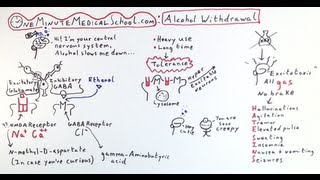 OneMinuteMedicalSchool.com: Alcohol Withdrawal
Hi! I'm your central
nervous system,
Alcohol slows me down...
Excitatory
Glutamate
Inhibitory
GABA
Ethanol
NMDA Receptor
Na+ Ca2+
GABA Receptor
Cl-
N-methyl-D-aspartate
(In case you're curious)
gamma-Aminobutyric
acid
• Heavy use
• Long time
Tolerance
Hyper
Excitable
Neurons
Lysosome
Hey
cutie
You are
super
creepy
Excitatosis
All gas
No brake
Hallucinations
Agitation
Tremor
Elevated pulse
Sweating
Insomnia
Nausea & vomiting
Seizures